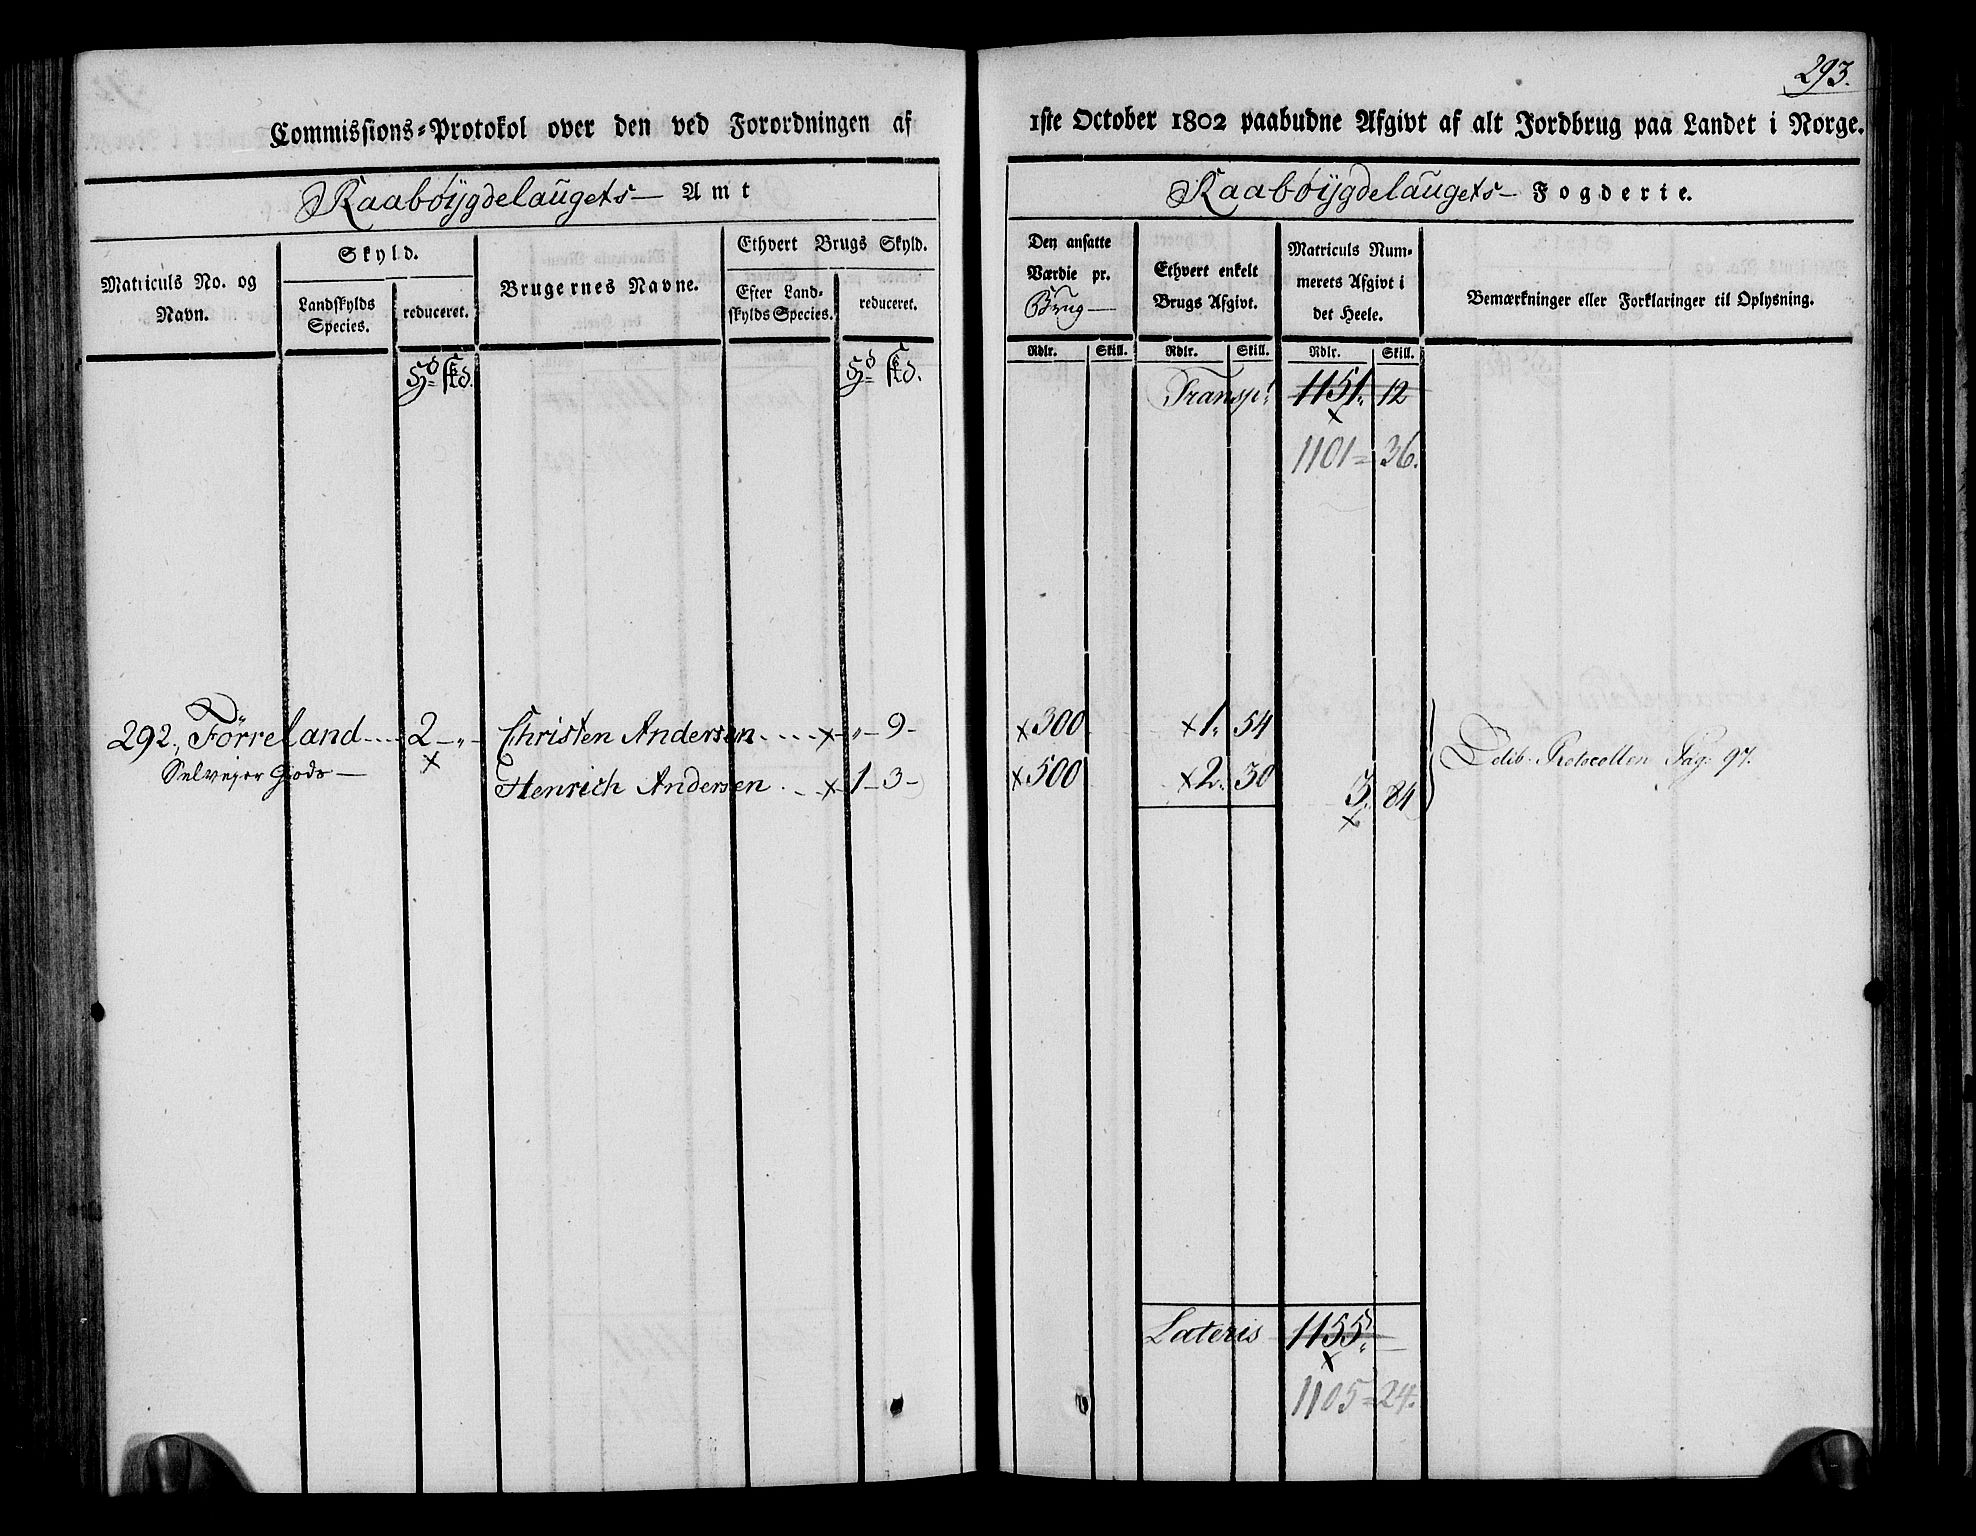 293.
Commissions-Protokol over den ved Forordningen af 1ste October 1802 paabudne Afgivt af alt Jordbrug paa Landet i Norge.
Raabøygdelaugets Amt
Raabøygdelaugets Fogderie.
Matriculs No. og Navn.
Skyld.
Landskylds Species.
reduceret.
Brugernes Navne.
Ethvert Brugs Skyld.
Efter Landskylds Species.
reduceret.
Den ansatte Værdie pr. Brug
Ethvert enkelt Brugs Afgivt.
Matriculs Nummerets Afgivt i det Heele.
Bemærkninger eller Forklaringer til Oplysning.
Rdlr. Skill. Rdlr. Skill. Rdlr. Skill.
Transpt 1151 12
1101 = 36.
292, Förreland 2 - „ - Christen Andersen x „ - 9 - x 300 x 1. 54
Selvejer Gods x Henrich Andersen x 1 - 3 - x 500 x 2. 30 3. 84 Delib. Protocollen Pag. 97.
Lateris 1155 „ —
1105 = 24.